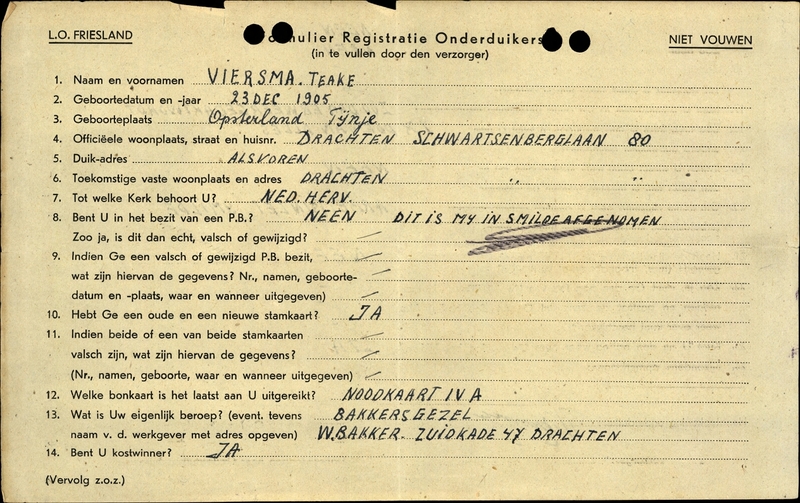 L.O. FRIESLAND
Formulier Registratie Onderduikers
NIET VOUWEN
(in te vullen door den verzorger)
1. Naam en voornamen VIERSMA. TEAKE
2. Geboortedatum en -jaar 23 DEC 1905
3. Geboorteplaats Opsterland Tÿnje
4. Officiëele woonplaats, straat en huisnr. DRACHTEN SCHWARTSENBERGLAAN 80
5. Duik-adres ALS VOREN
6. Toekomstige vaste woonplaats en adres DRACHTEN ,, ,,
7. Tot welke Kerk behoort U? NED. HERV.
8. Bent U in het bezit van een P.B.? NEEN DIT IS MY IN SMILDE AFGENOMEN
Zoo ja, is dit dan echt, valsch of gewijzigd? —
9. Indien Ge een valsch of gewijzigd P.B. bezit, —
wat zijn hiervan de gegevens? Nr., namen, geboorte- —
datum en -plaats, waar en wanneer uitgegeven) —
10. Hebt Ge een oude en een nieuwe stamkaart? JA
11. Indien beide of een van beide stamkaarten —
valsch zijn, wat zijn hiervan de gegevens? —
(Nr., namen, geboorte, waar en wanneer uitgegeven) —
12. Welke bonkaart is het laatst aan U uitgereikt? NOODKAART IV A
13. Wat is Uw eigenlijk beroep? (event. tevens BAKKERSGEZEL
naam v. d. werkgever met adres opgeven) W. BAKKER. ZUIDKADE 47 DRACHTEN
14. Bent U kostwinner? JA
(Vervolg z.o.z.)